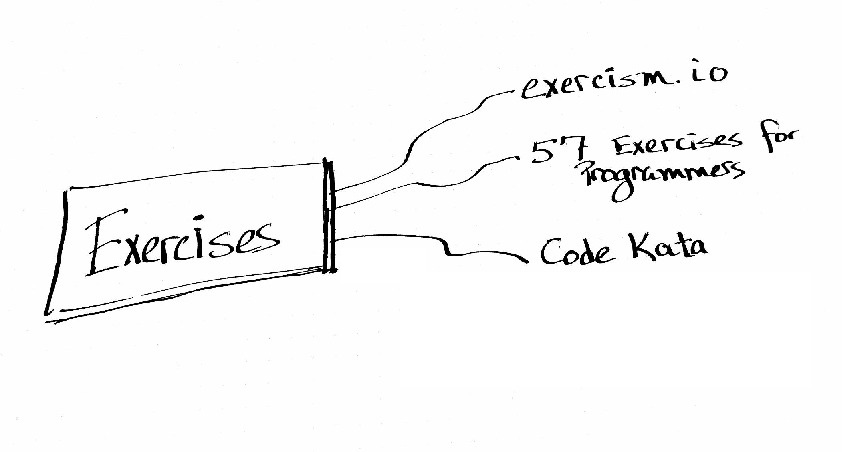 Exercises
exercism.io
57 Exercises for
Programmers
Code Kata